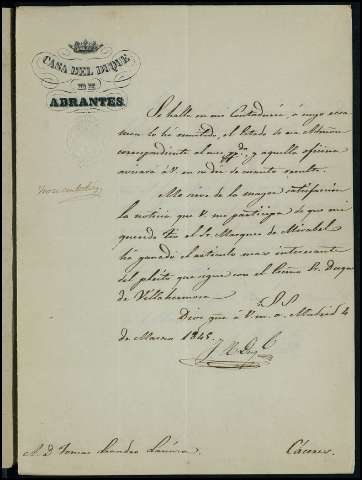 CASA DEL DUQUE
DE
ABRANTES.
Se halla en mi Contaduria, á cuyo exa-
men lo he remitido, el Estado de esa Admon
correspondiente al mes ppdo. y aquella oficina
avisará á V. en su dia de cuanto resulte.
Me sirve de la mayor satisfaccion
la noticia que V. me participa de que mi
querido tio el Sr. Marques de Mirabel
ha ganado el articulo mas interesante
del pleito que sigue con el Exmo. Sr. Duque
de Villahermosa.
Dios gue. á V. m. a. Madrid 4
de Marzo 1845.
A. D. Tomas
Cáceres.